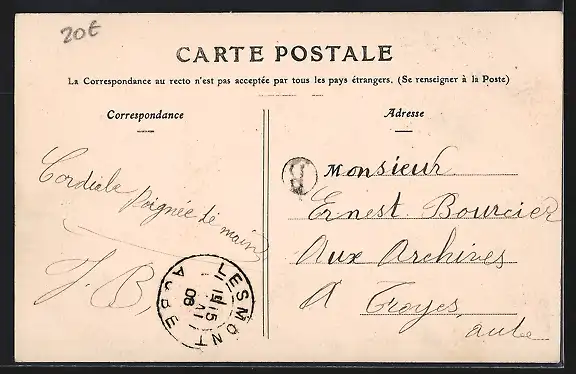 20€
CARTE POSTALE
La Correspondance au recto n'est pas acceptée par tous les pays étrangers. (Se renseigner à la Poste)
Correspondance
Cordiale Poignée de mains
J. B.
Adresse
B
Monsieur
Ernest Bourcier
Aux Archives
A Troyes
aube
LESMONT
15
08
AUBE